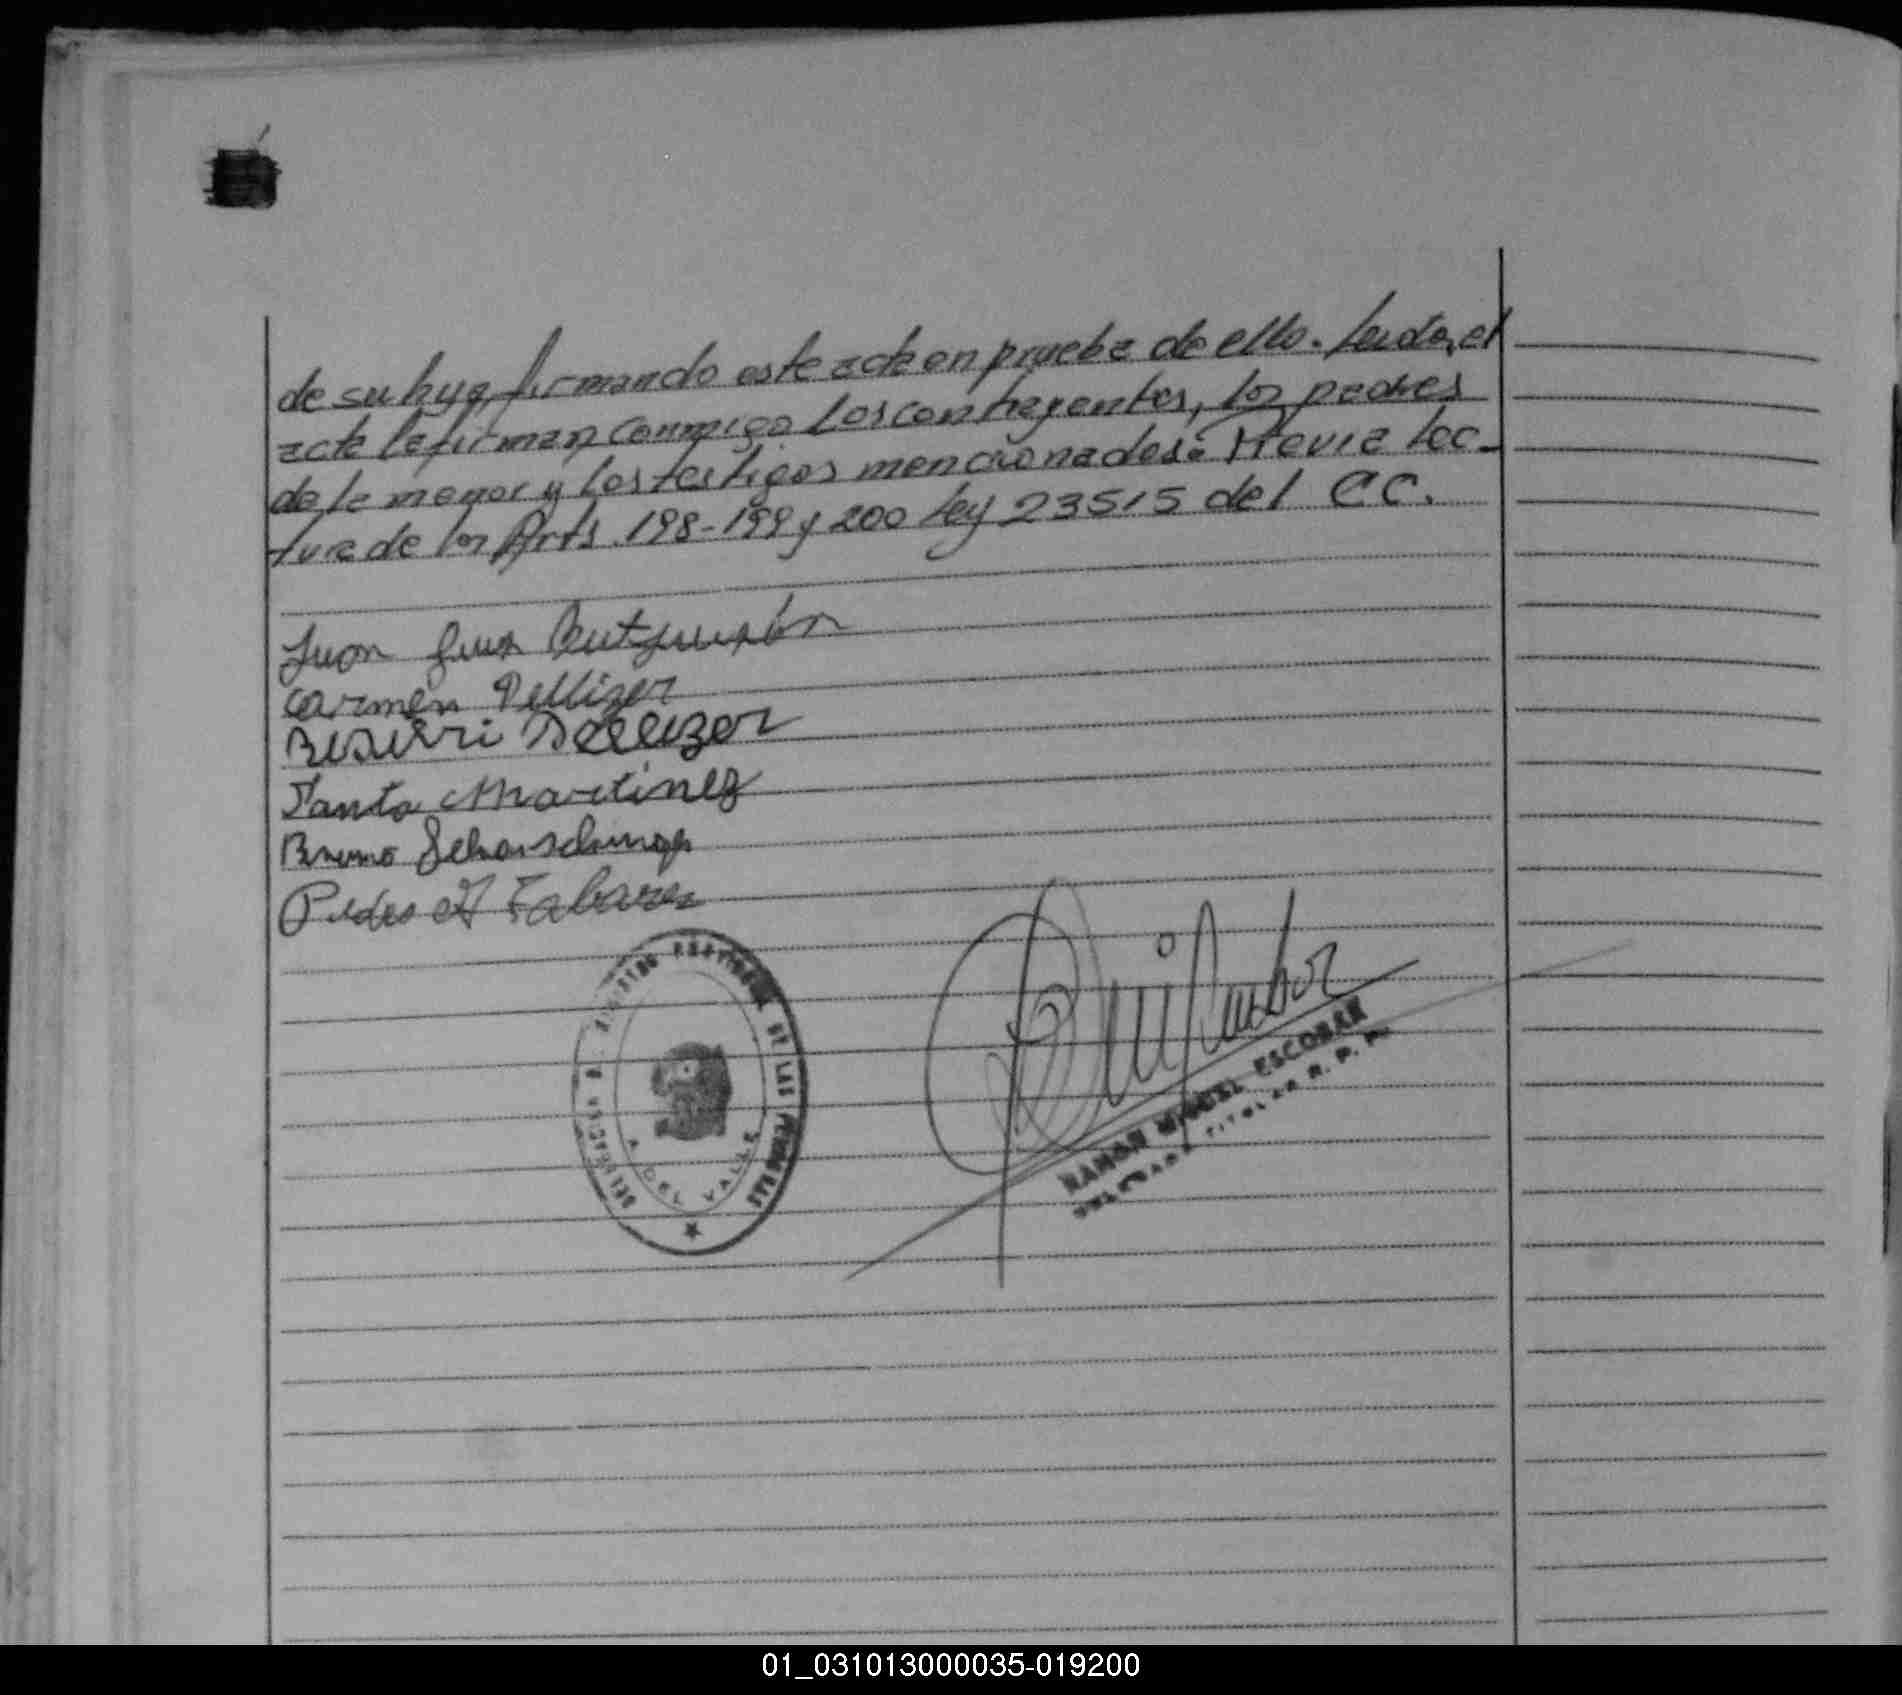 de su hija, firmando este acte en prueba de ello. Leida, el
acte la firman conmigo los contrayentes, los padres
de la menor y los testigos mencionados: Previa lec-
tura de los Arts. 198-199 y 200 Ley 23515 del CC.
Juan
Carmen Pellizer
Pellizer
Santa Martinez
Bruno
Pedro A Tabarez
PROVINCIAL DE LAS PERSONAS
DELEGACION
A. DEL VALLE
RAMON MIGUEL ESCOBAR
TITULAR R. P. P.
01_031013000035-019200